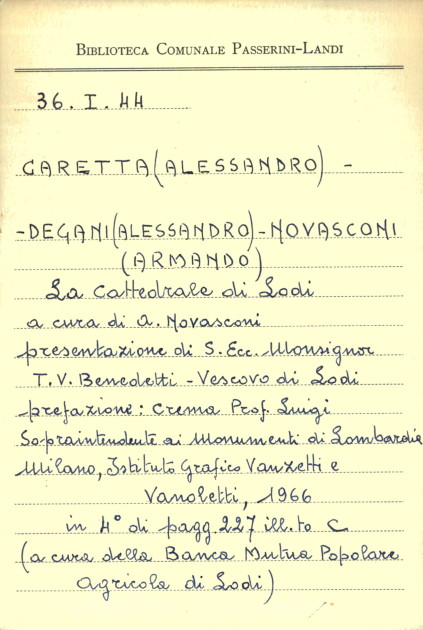 BIBLIOTECA COMUNALE PASSERINI-LANDI
36. I. 44
CARETTA (ALESSANDRO) -
-DEGANI (ALESSANDRO) - NOVASCONI
(ARMANDO)
La Cattedrale di Lodi
a cura di A. Novasconi
presentazione di S. Ecc. Monsignor
T. V. Benedetti - Vescovo di Lodi
prefazione: Crema Prof. Luigi
Sopraintendente ai Monumenti di Lombardia
Milano, Istituto Grafico Vanzetti e
Vanoletti, 1966
in 4° di pagg. 227 ill.to C
(a cura della Banca Mutua Popolare
Agricola di Lodi)